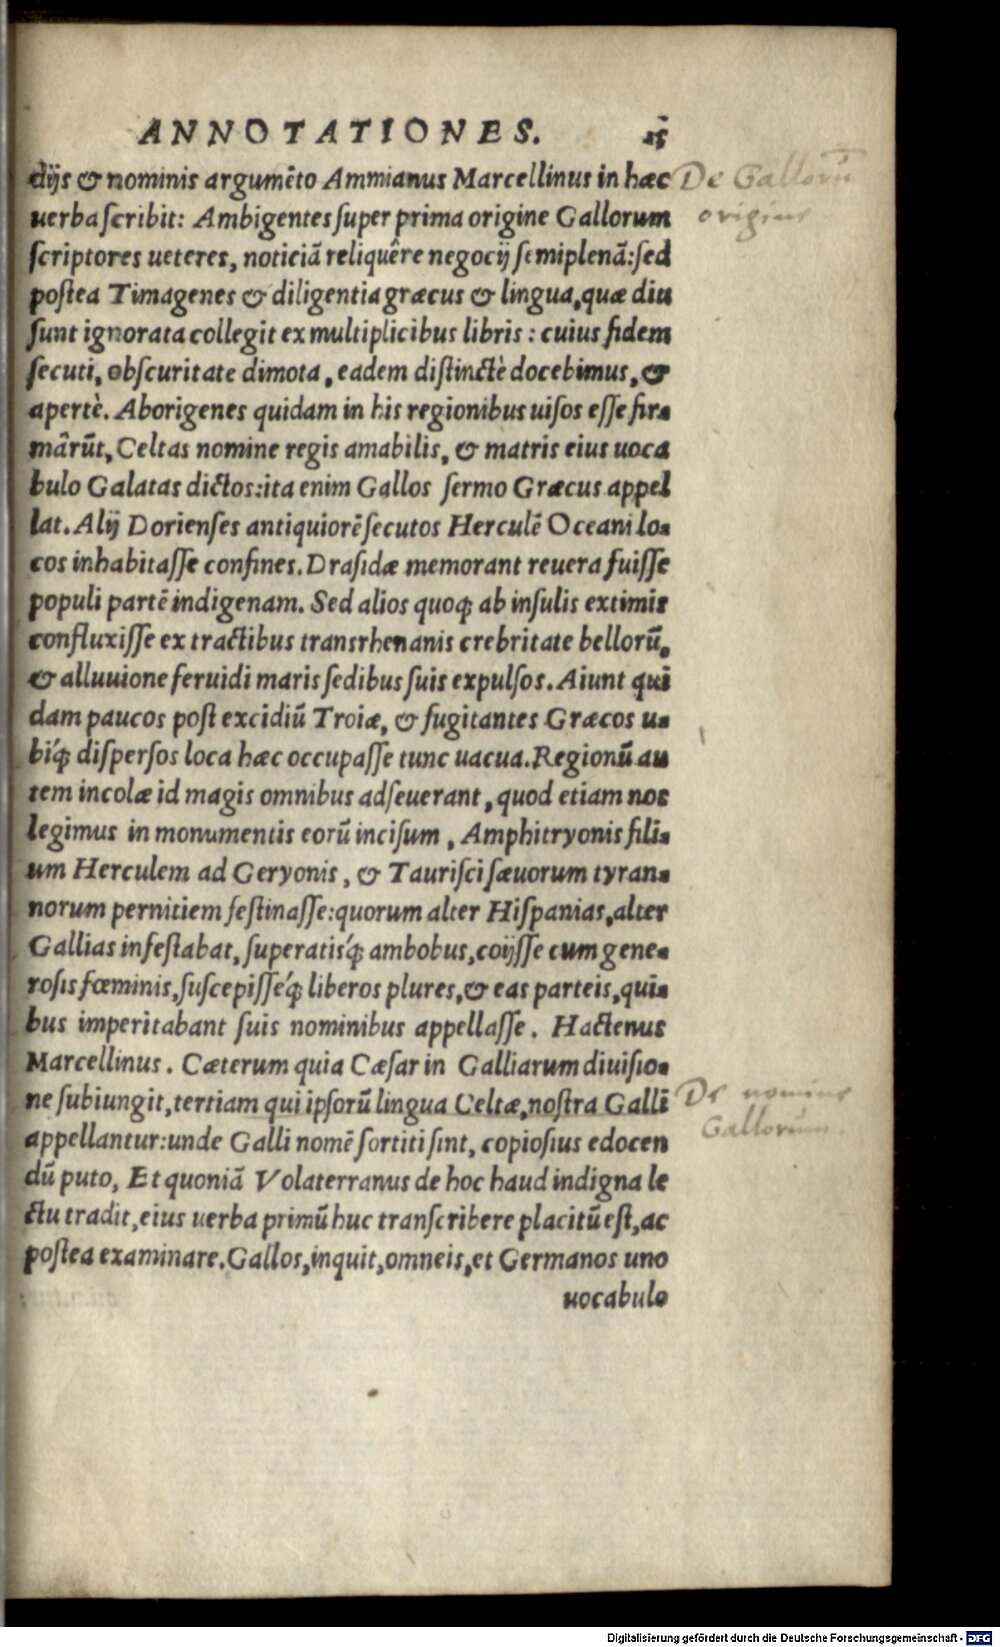 ANNOTATIONES. 15
dijs & nominis argumẽto Ammianus Marcellinus in hæc
uerba ſcribit: Ambigentes ſuper prima origine Gallorum
ſcriptores ueteres, noticiã reliquêre negocij ſemiplenã: ſed
poſtea Timagenes & diligentia græcus & lingua, quæ diu
ſunt ignorata collegit ex multiplicibus libris: cuius fidem
ſecuti, obſcuritate dimota, eadem diſtinctè docebimus, &
apertè. Aborigenes quidam in his regionibus uiſos eſſe fir-
mârũt, Celtas nomine regis amabilis, & matris eius uoca
bulo Galatas dictos: ita enim Gallos ſermo Græcus appel
lat. Alij Dorienſes antiquiorẽ ſecutos Herculẽ Oceani lo-
cos inhabitaſſe confines. Draſidæ memorant reuera fuiſſe
populi partẽ indigenam. Sed alios quoq; ab inſulis extimis
confluxiſſe ex tractibus transrhenanis crebritate bellorũ,
& alluuione feruidi maris ſedibus ſuis expulſos. Aiunt qui
dam paucos poſt excidiũ Troiæ, & fugitantes Græcos u-
biq́; diſperſos loca hæc occupaſſe tunc uacua. Regionũ au
tem incolæ id magis omnibus adſeuerant, quod etiam nos
legimus in monumentis eorũ inciſum, Amphitryonis fili-
um Herculem ad Geryonis, & Tauriſci ſæuorum tyran-
norum pernitiem feſtinaſſe: quorum alter Hiſpanias, alter
Gallias infeſtabat, ſuperatisq́; ambobus, coijſſe cum gene-
roſis fœminis, ſuſcepiſſeq́; liberos plures, & eas parteis, qui-
bus imperitabant ſuis nominibus appellaſſe. Hactenus
Marcellinus. Cæterum quia Cæſar in Galliarum diuiſio-
ne ſubiungit, tertiam qui ipſorũ lingua Celtæ, noſtra Galli
appellantur: unde Galli nomẽ ſortiti ſint, copioſius edocen
dũ puto, Et quoniã Volaterranus de hoc haud indigna le
ctu tradit, eius uerba primũ huc tranſcribere placitũ eſt, ac
poſtea examinare. Gallos, inquit, omneis, et Germanos uno
uocabulo
De Gallorũ
origine
De nomine
Gallorum.
Digitalisierung gefördert durch die Deutsche Forschungsgemeinschaft - DFG